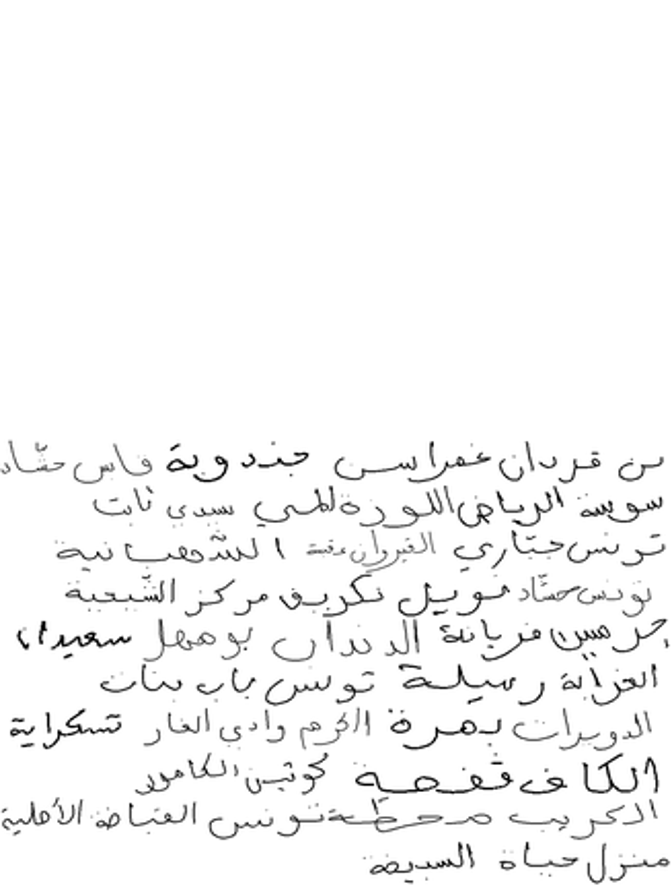 بن قردان غمراسن جندوبة قابس حشّاد
سوسة الرياض اللوزة لمسي سيدي ثابت
تونس حبّاري القيروان عقبة الشهبانية
تونس حشّاد نكريف مركز الشّيعبية
فريانة الدندان بومهل سعيدان
العرابة رميلة تونس باب بنات
الدويرات دهرة الكرم وادي الغار تسكراية
الكاف قفصة كوتين الكامور
الكريب محطة تونس القباضة الأهلية
منزل حياة السبيخة